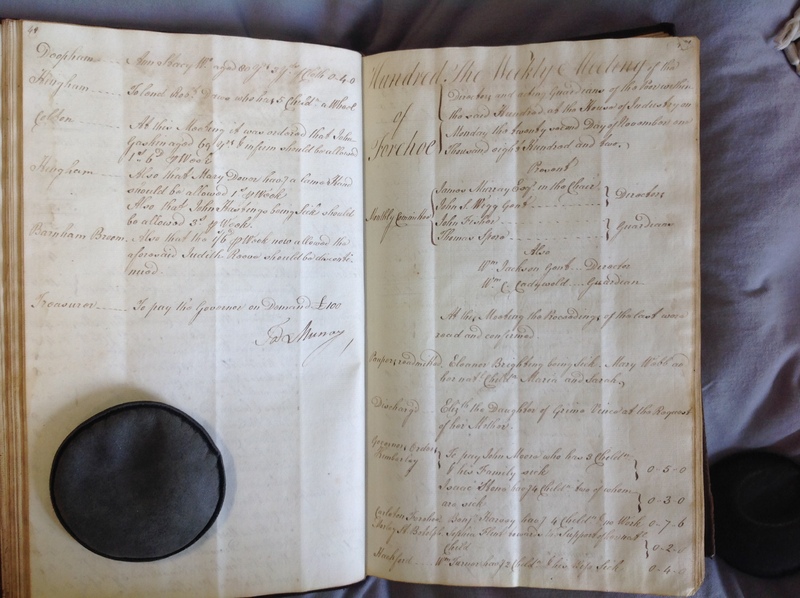 44
Deopham Ann Wm aged 80 Yrs 0-4-0
Hingham who has 5 Childn
Colton At this Meeting it was ordered that John
aged 69 Yrs & infirm should be allowed
1s 6d P Week
Hingham Also that Mary Dover havg a lame Hand
should be allowed 1s P Week
Also that John being Sick should
be allowed 3s P Week
Barnham Broom Also that the 1/6 P Week now allowed the
aforesaid Judith should be discontinued
Treasurer To pay the Governor on Demand £100
Jas Murray
Hundred of Forehoe
The Weekly Meeting of the
Directors and acting Guardians of the Poor within
the said Hundred at the House of Industry on
Monday the twenty second Day of November one
Thousand eight Hundred and two.
Present
Monthly Committee
James Murray Esqr in the Chair
John S. Wigg Gent
Directors
John Fisher
Thomas
Guardians
Also
Wm Jackson Gent Director
Wm C. Guardian
At this Meeting the Proceedings of the last were
read and confirmed
Paupers readmitted Eleanor Brighten being Sick, Mary Webb and
her natl Childn Maria and Sarah
Discharged Elizth the Daughter of at the Request
of her Mother
Governor Orders
Kimberley To pay John Moore who has 3 Childn
& his Family sick 0-5-0
Isaac havg 4 Childn two of whom
are sick 0-3-0
Carleton Forehoe Benjn havg 4 Childn & no Work 0-7-6
Child 0-2-
Hackford Wm Turner havg 2 Childn & his Wife Sick 0-4-0